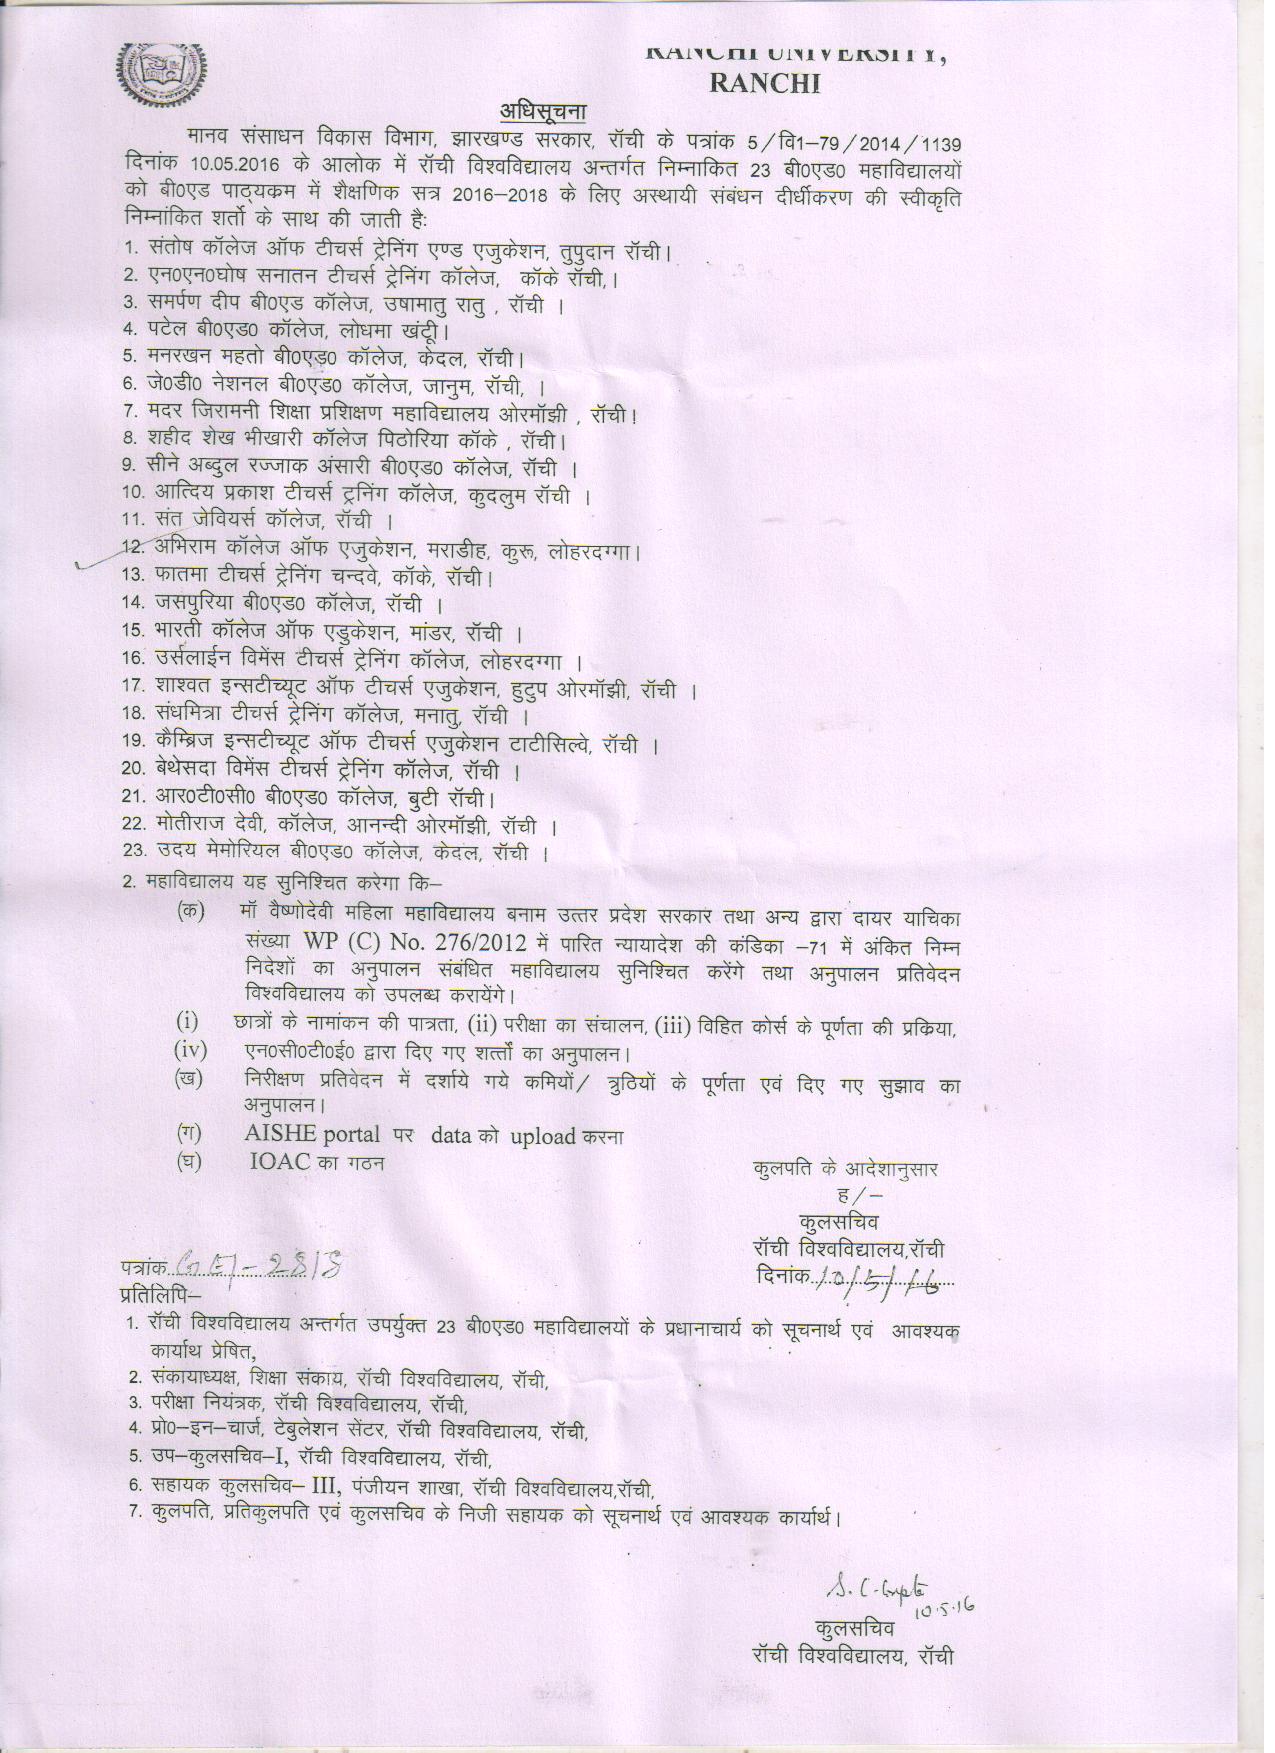 RANCHI UNIVERSITY,
RANCHI
अधिसूचना
मानव संसाधन विकास विभाग, झारखण्ड सरकार, रॉची के पत्रांक 5/वि1–79/2014/1139
दिनांक 10.05.2016 के आलोक में रॉची विश्वविद्यालय अन्तर्गत निम्नाकित 23 बी0एड0 महाविद्यालयों
को बी0एड पाठ्यक्रम में शैक्षणिक सत्र 2016–2018 के लिए अस्थायी संबंधन दीर्धीकरण की स्वीकृति
निम्नांकित शर्तो के साथ की जाती हैः
1. संतोष कॉलेज ऑफ टीचर्स ट्रेनिंग एण्ड एजुकेशन, तुपुदान रॉची।
2. एन0एन0घोष सनातन टीचर्स ट्रेनिंग कॉलेज, कॉके रॉची,।
3. समर्पण दीप बी0एड कॉलेज, उषामातु रातु , रॉची ।
4. पटेल बी0एड0 कॉलेज, लोधमा खंटूी।
5. मनरखन महतो बी0एड़0 कॉलेज, केदल, रॉची।
6. जे0डी0 नेशनल बी0एड0 कॉलेज, जानुम, रॉची, ।
7. मदर जिरामनी शिक्षा प्रशिक्षण महाविद्यालय ओरमॉझी , रॉची।
8. शहीद शेख भीखारी कॉलेज पिठोरिया कॉके , रॉची।
9. सीने अब्दुल रज्जाक अंसारी बी0एड0 कॉलेज, रॉची ।
10. आत्दिय प्रकाश टीचर्स ट्रनिंग कॉलेज, कुदलुम रॉची ।
11. संत जेवियर्स कॉलेज, रॉची ।
12. अभिराम कॉलेज ऑफ एजुकेशन, मराडीह, कुरू, लोहरदग्गा।
13. फातमा टीचर्स ट्रेनिंग चन्दवे, कॉके, रॉची।
14. जसपुरिया बी0एड0 कॉलेज, रॉची ।
15. भारती कॉलेज ऑफ एडुकेशन, मांडर, रॉची ।
16. उर्सलाईन विमेंस टीचर्स ट्रेनिंग कॉलेज, लोहरदग्गा ।
17. शाश्वत इन्सटीच्यूट ऑफ टीचर्स एजुकेशन, हुटुप ओरमॉझी, रॉची ।
18. संधमित्रा टीचर्स ट्रेनिंग कॉलेज, मनातु, रॉची ।
19. कैम्ब्रिज इन्सटीच्यूट ऑफ टीचर्स एजुकेशन टाटीसिल्वे, रॉची ।
20. बेथेसदा विमेंस टीचर्स ट्रेनिंग कॉलेज, रॉची ।
21. आर0टी0सी0 बी0एड0 कॉलेज, बुटी रॉची।
22. मोतीराज देवी, कॉलेज, आनन्दी ओरमॉझी, रॉची ।
23. उदय मेमोरियल बी0एड0 कॉलेज, केदल, रॉची ।
2. महाविद्यालय यह सुनिश्चित करेगा कि–
(क) मॉ वैष्णोदेवी महिला महाविद्यालय बनाम उत्तर प्रदेश सरकार तथा अन्य द्वारा दायर याचिका
संख्या WP (C) No. 276/2012 में पारित न्यायादेश की कंडिका –71 में अंकित निम्न
निदेशों का अनुपालन संबंधित महाविद्यालय सुनिश्चित करेंगे तथा अनुपालन प्रतिवेदन
विश्वविद्यालय को उपलब्ध करायेंगे।
(i) छात्रों के नामांकन की पात्रता, (ii) परीक्षा का संचालन, (iii) विहित कोर्स के पूर्णता की प्रक्रिया,
(iv) एन0सी0टी0ई0 द्वारा दिए गए शर्त्तों का अनुपालन।
(ख) निरीक्षण प्रतिवेदन में दर्शाये गये कमियों/ त्रुठियों के पूर्णता एवं दिए गए सुझाव का
अनुपालन।
(ग) AISHE portal पर data को upload करना
(घ) IOAC का गठन
कुलपति के आदेशानुसार
ह/–
कुलसचिव
रॉची विश्वविद्यालय,रॉची
पत्रांक
दिनांक..10/5/16
प्रतिलिपि–
1. रॉची विश्वविद्यालय अन्तर्गत उपर्युक्त 23 बी0एड0 महाविद्यालयों के प्रधानाचार्य को सूचनार्थ एवं आवश्यक
कार्याथ प्रेषित,
2. संकायाध्यक्ष, शिक्षा संकाय, रॉची विश्वविद्यालय, रॉची,
3. परीक्षा नियंत्रक, रॉची विश्वविद्यालय, रॉची,
4. प्रो0–इन–चार्ज, टेबुलेशन सेंटर, रॉची विश्वविद्यालय, रॉची,
5. उप–कुलसचिव–I, रॉची विश्वविद्यालय, रॉची,
6. सहायक कुलसचिव– III, पंजीयन शाखा, रॉची विश्वविद्यालय,रॉची,
7. कुलपति, प्रतिकुलपति एवं कुलसचिव के निजी सहायक को सूचनार्थ एवं आवश्यक कार्यार्थ।
S. C. Gupta
10.5.16
कुलसचिव
रॉची विश्वविद्यालय, रॉची